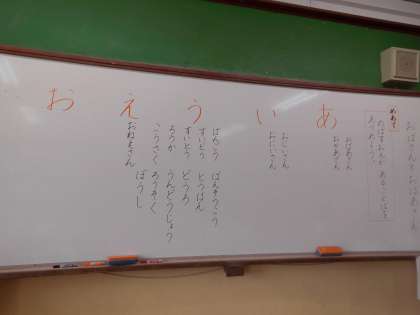 めあて
のばすおんの
ある
ことばを
あ
おばあさん
おかあさん
い
おじいさん
おにいさん
う
ばんごう
ばんそうこう
すいとう
とうばん
すいとう
どうろ
ろうか
うんどうじょう
こうさく
ろうそく
ぼうし
え
おねえさん
お